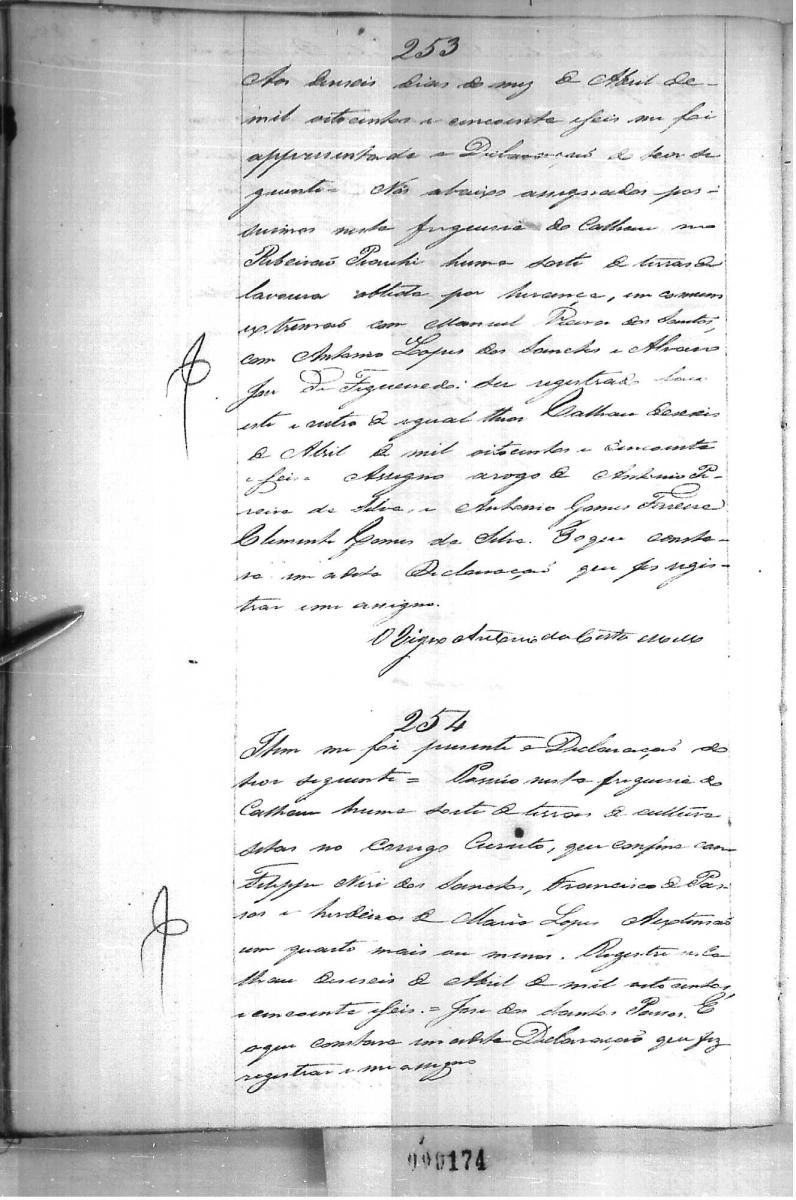 253
Aos deseseis dias do mez de Abril de
mil oitocentos e cincoenta e seis me foi
appresentada a Declaração do teor se
guinte = Nós abaixo assignados pos-
suimos nesta freguesia do Calhau no
Ribeirão Piauhi huma sorte de terras de
lavoura obtida por herança, em comum
extremão com Manuel Vieira dos Santos,
com Antonio Lopes dos Sanctos e Alvaro
Jose De Figueiredo: ser registrado
este e outro de igual theor Calhau deseseis
de Abril de mil oitocentos e cincoenta
e seis = Assigno arogo de Antonio Pe-
reira da Silva, e Antonio Gomes Ferreira
Clemente Gomes da Silva. Eo que consta-
va em adita Declaração que fes regis-
trar e me assigno.
O Vigro Antonio da Costa
254
Item me foi presente a Declaração do
teor seguinte = Possúo nesta freguesia do
Calhau huma sorte de terras de cultura
sitas no Corrego Curuto, que confina com
Filippe Neri dos Sanctos, Francisco de Pas-
sos e herdeiros de Maria Lopes Aextensão
um quarto mais ou menos. Registre se Ca
lhau deseseis de Abril de mil oitocentos
e cincoenta e seis. = Jose dos Santos Passos. E
oque constava em adita Declaração que fiz
registrar e me assigno
000174